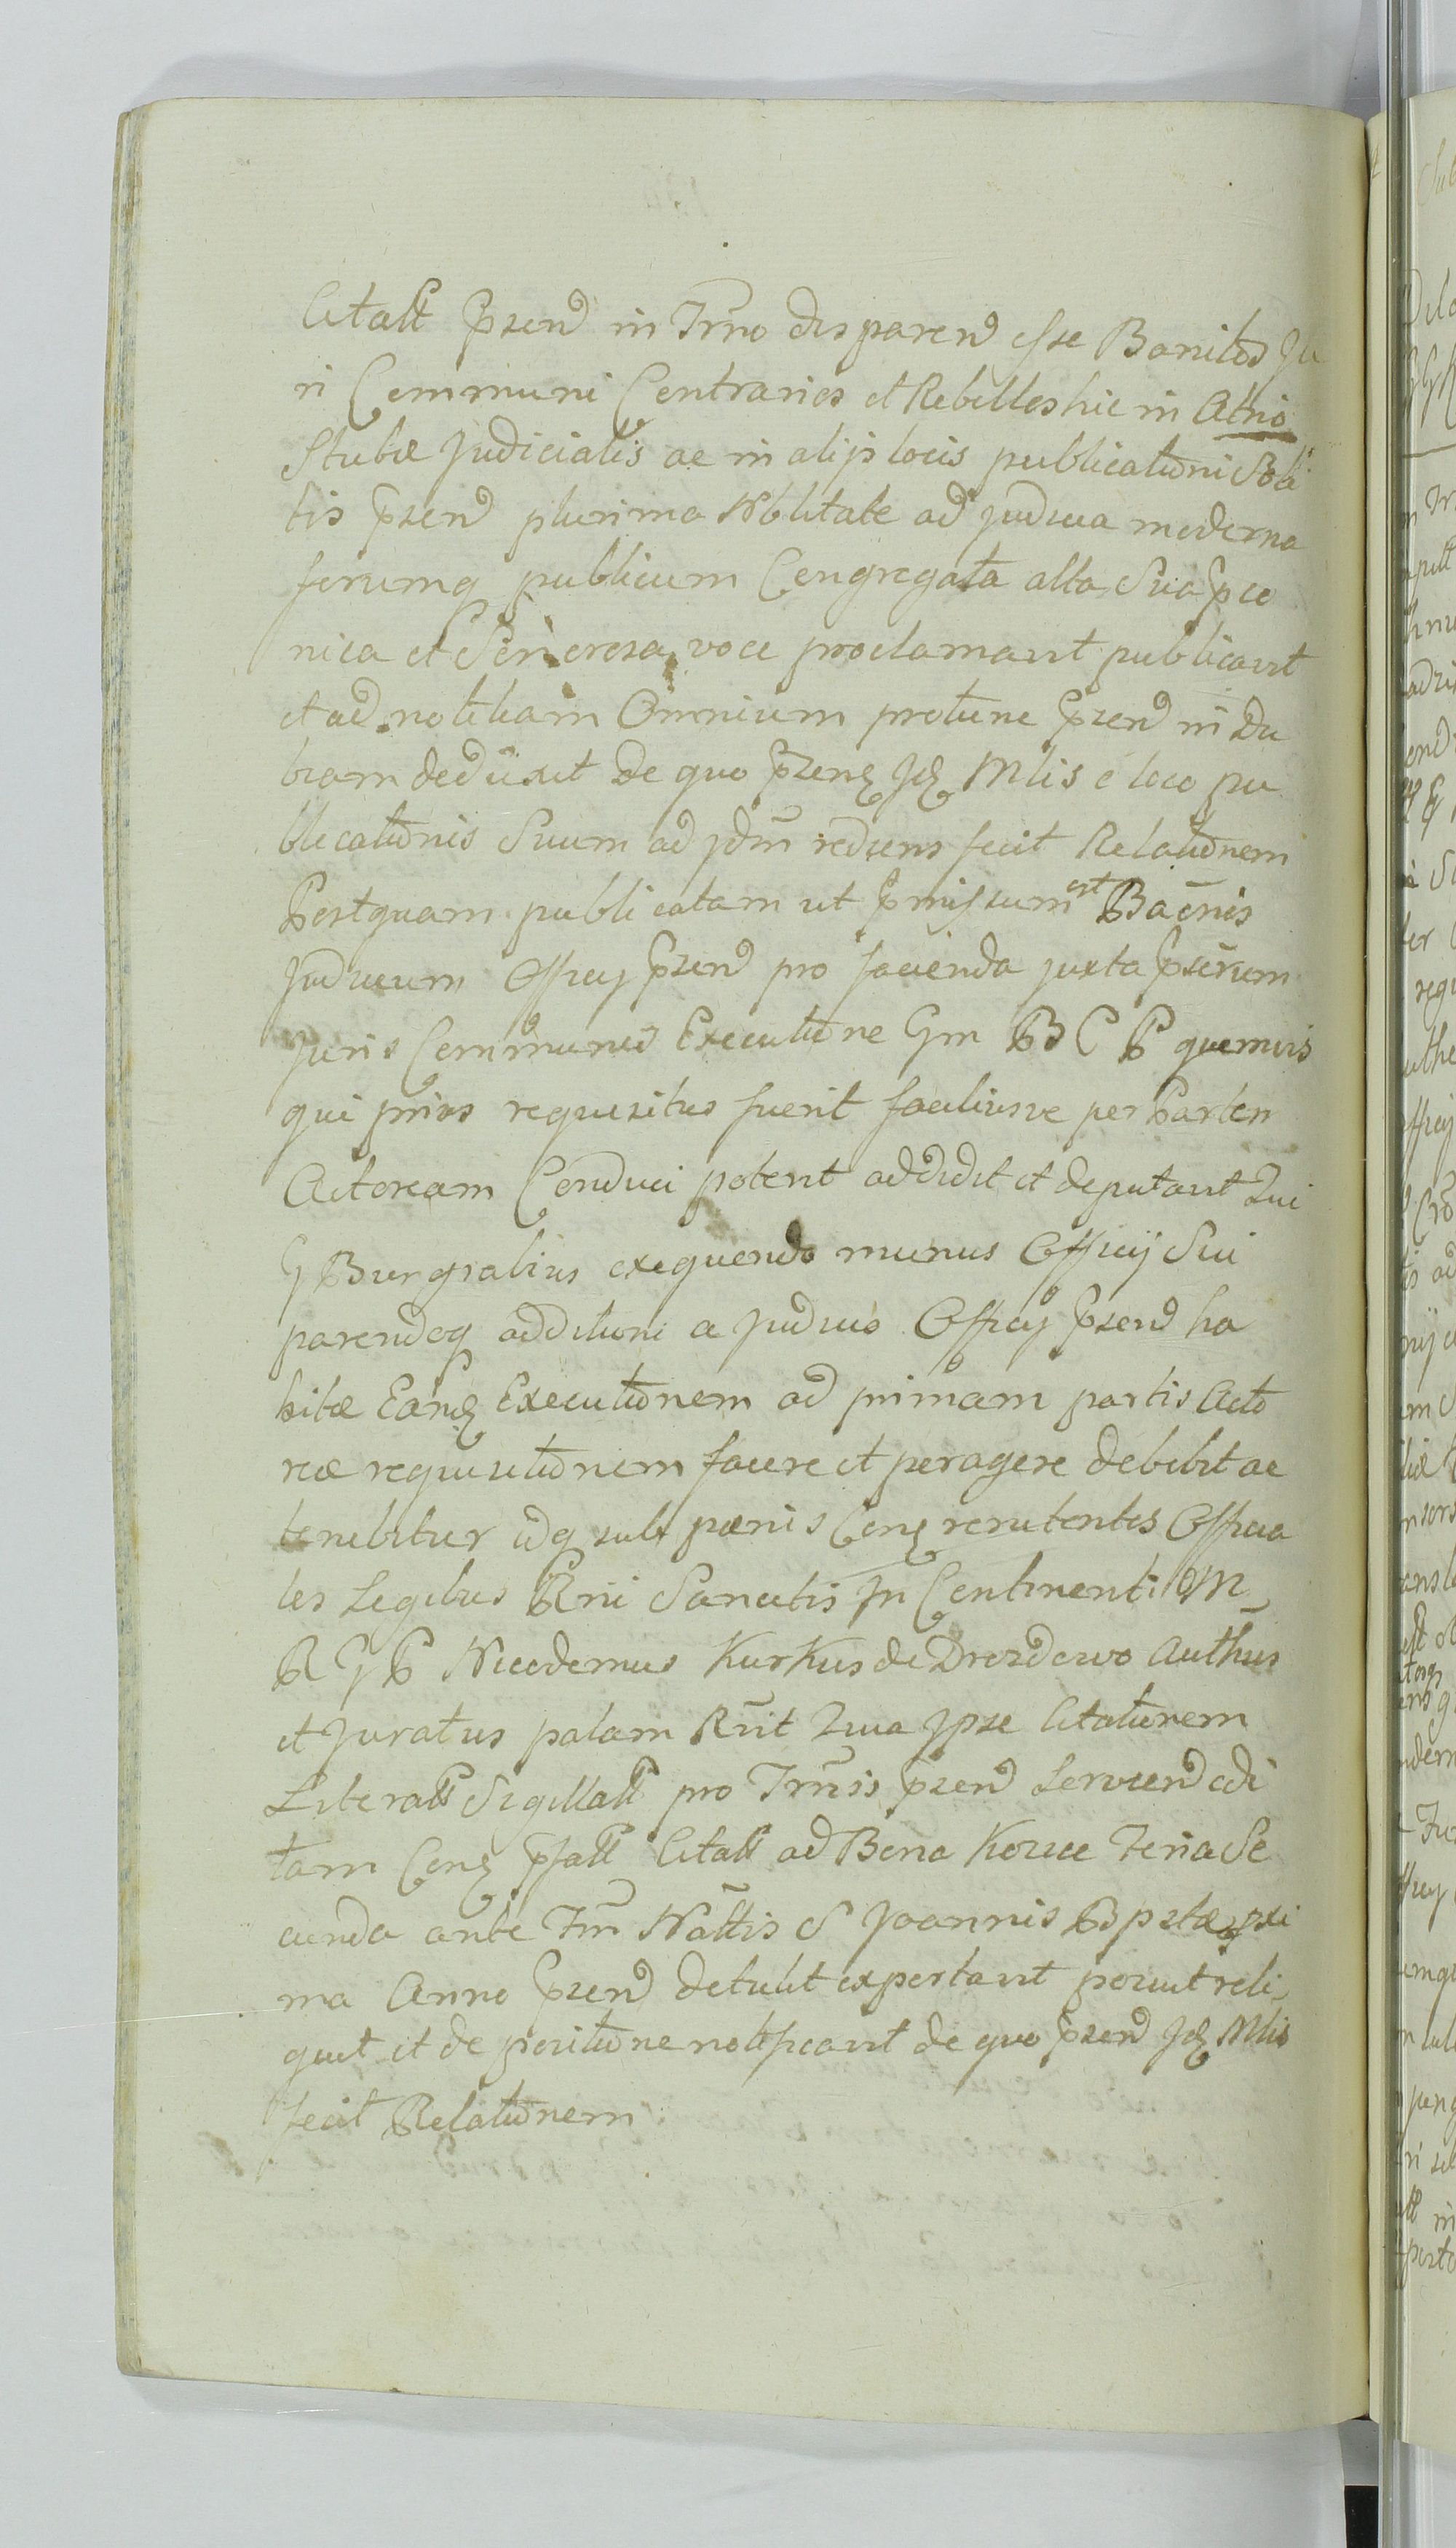 Citatt prsend in Trmo disparend esse Banitos Ju
ri Communi Contrarios et Rebelles hic in Atrio
Stubæ Judicialis ac in alijs locis publicationi Soli
tis prsend plurima Nblitate ad judicia moderna
forumq publicum Congregata alta Sua prco
nica et Sonorosa voce proclamavit publicavit
et ad notitiam Omnium protunc prsend in Du
biam deduxit De quo przens Jds Mlis e loco pu
blicationis Suum ad jdm rediens fecit Relationem
Postquam publicatam ut prmissum est Bacnis
Judicium Officij prsend pro facienda juxta prscrum
Juris Communis Executione Gm B C P quemvis
qui prius requisitus fuerit faciliusve per Partem
Actoream Conduci poterit addidit et deputavit Qui
G Burgrabius exequendo munus Officij Sui
parendoq additioni a Judicio Officij prsend ha
bitæ Eands Executionem ad primam partis Acto
reæ requisitionem facere et peragere debebit ac
tenebitur idq sub pœnis Cons renitentes Officia
les Legibus Rni Sancitis In Continenti M
R G P Nicodemus Kurkus de Drozdowo Authus
et Juratus palam Rvit Quia Jpse Citationem
Literall Sigillatt pro Trmis prsend Serviend edi
tam Cons pfatt Citatt ad Bona Kozice Feria Se
cunda ante Fm Nattis S Joannis Bpstæ pxi
ma Anno prsend detulit exportavit posuit reli
quit et de positione notificavit de quo prsend Jds Mlis
fecit Relationem